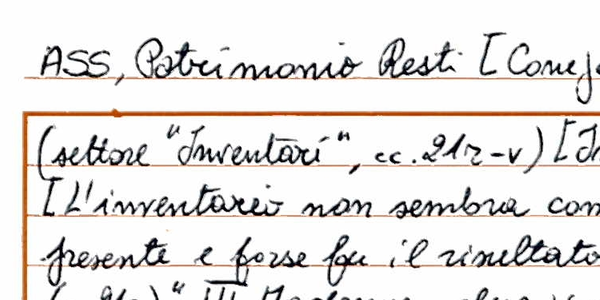 ASS, Patrimonio Resti [Conej
(settore "Inventari", cc. 21r-v) [In
[L'inventario non sembra com
presente e forse fu il risultato